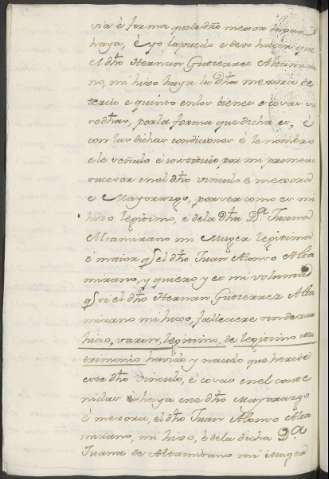 via é forma q̃ el dho mexor lugar
haya, é yo la puedo e devo hacer que
el dho Hernan Gutierrez Altamira-
no, mi hixo haya la dha mexoria de
tercio e quinto en los bienes e cosas su
sodhas, por la forma que dicha es, é
con las dichas condiciones é le nombro
e le señalo é constituio por mi primero
sucesor en el dho vinculo é mexoria
é Mayorazgo, por ser como es mi
hixo legitimo, é de la dha Dª Juana
Altamirano mi Muger legitima
é maior q̃ el dho Juan Alonso Alta
mirano, y quiero y es mi voluntad
q̃ si el dho Hernan Gutierrez Alta
mirano mi hixo, falleciere sin dexar
hixo, varon, legitimo, de legitimo ma
trimonio havido y nacido que herede
este dho vinculo, é cosas en el conte
nidas é haya este dho Mayorazgo
é mexora, el dho Juan Alonso Alta
mirano, mi hixo, é de la dicha Dª
Juana de Altamirano mi Muger